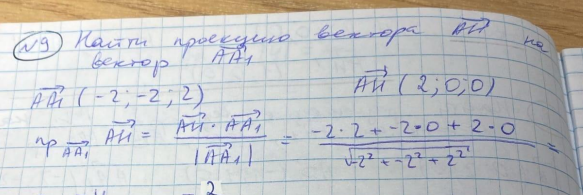 №9 Найти проекцию вектора AH⃗ на
вектор AA₁⃗
AA₁⃗ (-2; -2; 2) AH⃗ (2; 0; 0)
пр AA₁⃗ AH⃗ = AH⃗ · AA₁⃗ / |AA₁⃗| = -2·2 + -2·0 + 2·0 / √-2² + -2² + 2² =